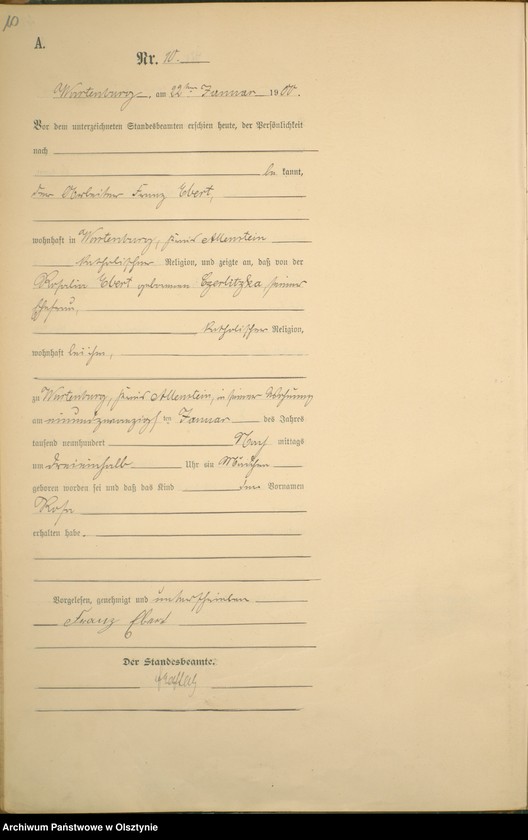 10
A.
Nr. 10.
Wartenburg, am 22ten Januar 1900.
Vor dem unterzeichneten Standesbeamten erschien heute, der Persönlichkeit
nach
bekannt,
der Arbeiter Franz Ebert,
wohnhaft in Wartenburg, Kreis Allenstein
katholischer Religion, und zeigte an, daß von der
Rosalia Ebert geborenen Czerlitzka, seiner
Ehefrau,
katholischer Religion,
wohnhaft bei ihm,
zu Wartenburg, Kreis Allenstein, in seiner Wohnung
am einundzwanzigsten Januar des Jahres
tausend neunhundert Nachmittags
um dreieinhalb Uhr ein Mädchen
geboren worden sei und daß das Kind den Vornamen
Rosa
erhalten habe.
Vorgelesen, genehmigt und unterschrieben
Franz Ebert
Der Standesbeamte.
Archiwum Państwowe w Olsztynie